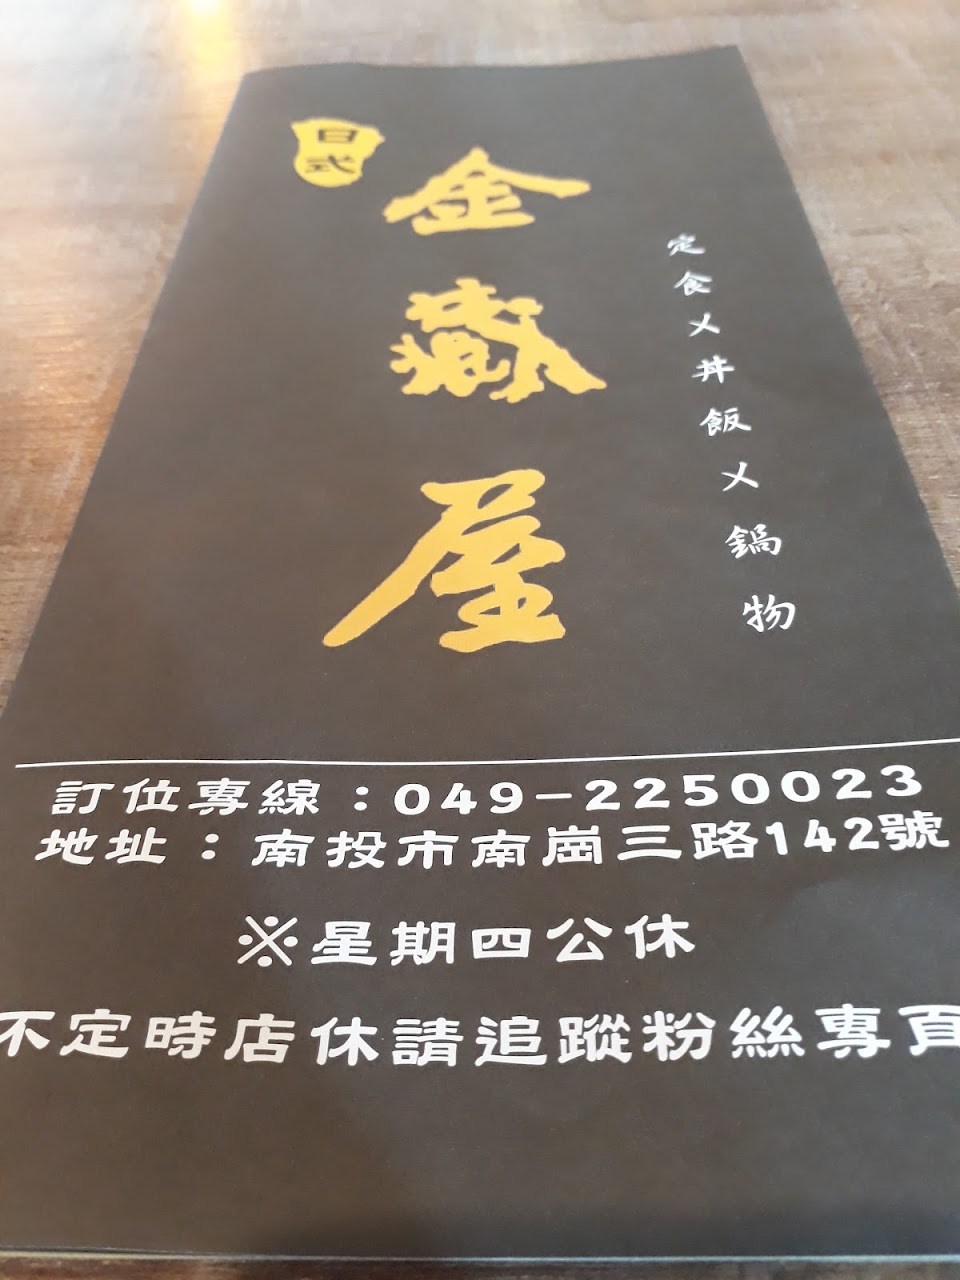 日式
金嶽屋
定食ㄨ丼飯ㄨ鍋物
訂位專線：049-2250023
地址：南投市南崗三路142號
※星期四公休
不定時店休請追蹤粉絲專頁